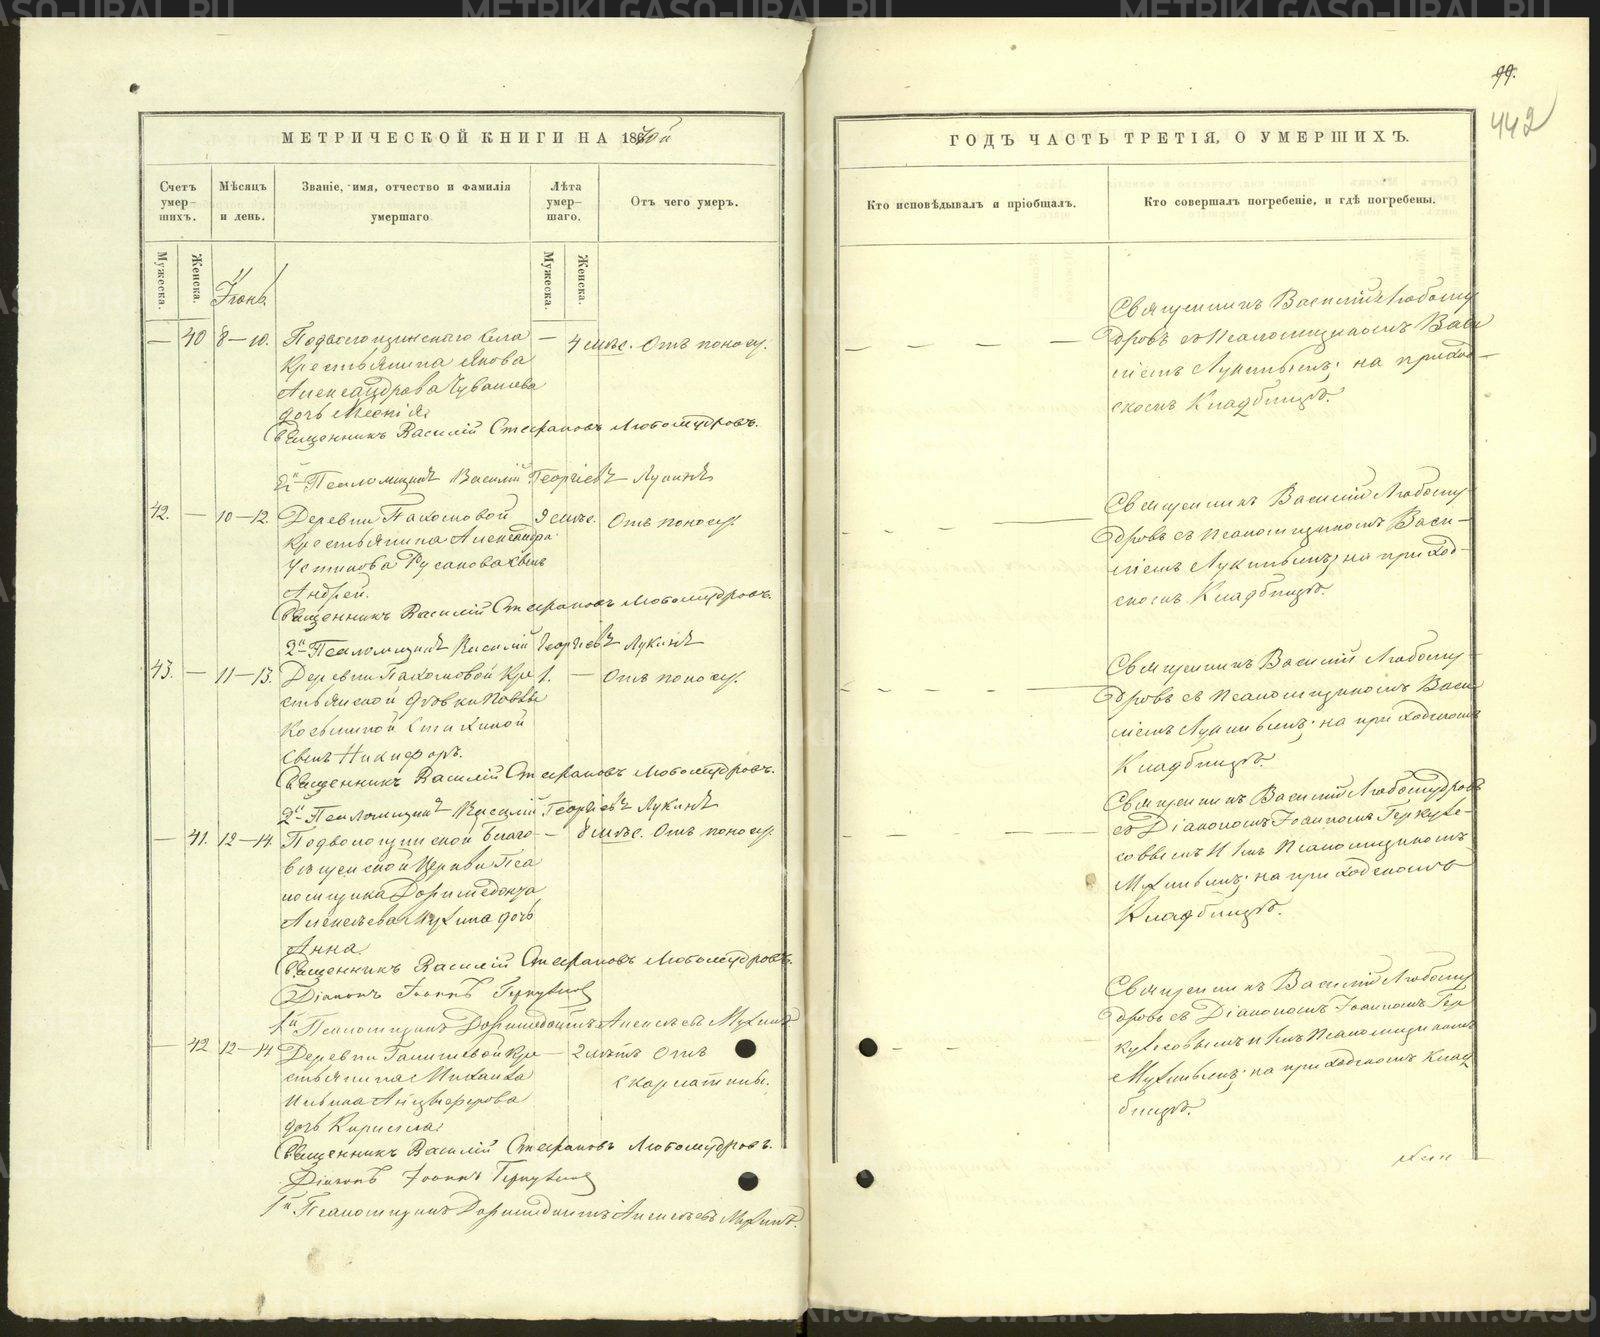 99.
442
МЕТРИЧЕСКОЙ КНИГИ НА 1870й
Счетъ умер-шихъ.
Мѣсяцъ и день.
Званіе, имя, отчество и фамилія умершаго.
Лѣта умер-шаго.
Отъ чего умеръ.
Мужеска.
Женска.
Мужеска.
Женска.
Іюнь
— 40 8—10. Подволошинскаго села — 4 мѣс. Отъ поносу.
Крестьянина Якова
Александрова Чувашева
дочь
Священникъ Василій Стефановъ Любомудровъ.
2й Псаломщикъ Василій Георгіевъ Лукинъ
42. — 10—12. Деревни Пахомовой 9 мѣс. Отъ поносу.
Крестьянина Александра
Устинова Русанова сынъ
Андрей.
Священникъ Василій Стефановъ Любомудровъ.
2й Псаломщикъ Василій Георгіевъ Лукинъ
43. — 11—13. Деревни Пахомовой Кре 1. — Отъ поносу.
стьянской дѣвки
Козьминой
сынъ Никифоръ.
Священникъ Василій Стефановъ Любомудровъ.
2й Псаломщикъ Василій Георгіевъ Лукинъ
— 41. 12—14. Подволошинской Благо — 8 мѣс. Отъ поносу.
вѣщенской Церкви Пса
ломщика Доримедонта
Алексѣева Мухина дочь
Анна.
Священникъ Василій Стефановъ Любомудровъ.
Діаконъ Іоаннъ
1й Псаломщикъ Доримедонтъ Алексѣевъ Мухинъ
— 42 12—14 Деревни Талашевой Кре — 2 лѣтъ Отъ
стьянина Михаила скарлатины.
Ильина Анцыферова
дочь
Священникъ Василій Стефановъ Любомудровъ.
Діаконъ Іоаннъ
1й Псаломщикъ Доримедонтъ Алексѣевъ Мухинъ.
ГОДЪ ЧАСТЬ ТРЕТІЯ, О УМЕРШИХЪ.
Кто исповѣдывалъ и пріобщалъ.
Кто совершалъ погребеніе, и гдѣ погребены.
Священникъ Василій Любому
дровъ съ Псаломщикомъ Васи
ліемъ Лукинымъ; на приход-
скомъ Кладбищѣ.
Священникъ Василій Любому-
дровъ съ Псаломщикомъ Васи-
ліемъ Лукинымъ; на приход-
скомъ Кладбищѣ.
Священникъ Василій Любому-
дровъ съ Псаломщикомъ Васи
ліемъ Лукинымъ; на приходскомъ
Кладбищѣ.
Священникъ Василій Любомудровъ
съ Діакономъ Іоанномъ
и 1мъ Псаломщикомъ
Мухинымъ; на приходскомъ
Кладбищѣ.
Священникъ Василій Любому
дровъ съ Діакономъ Іоанномъ
и 1мъ Псаломщикомъ
Мухинымъ; на приходскомъ Клад
бищѣ.
METRIKI.GASO-URAL.RU